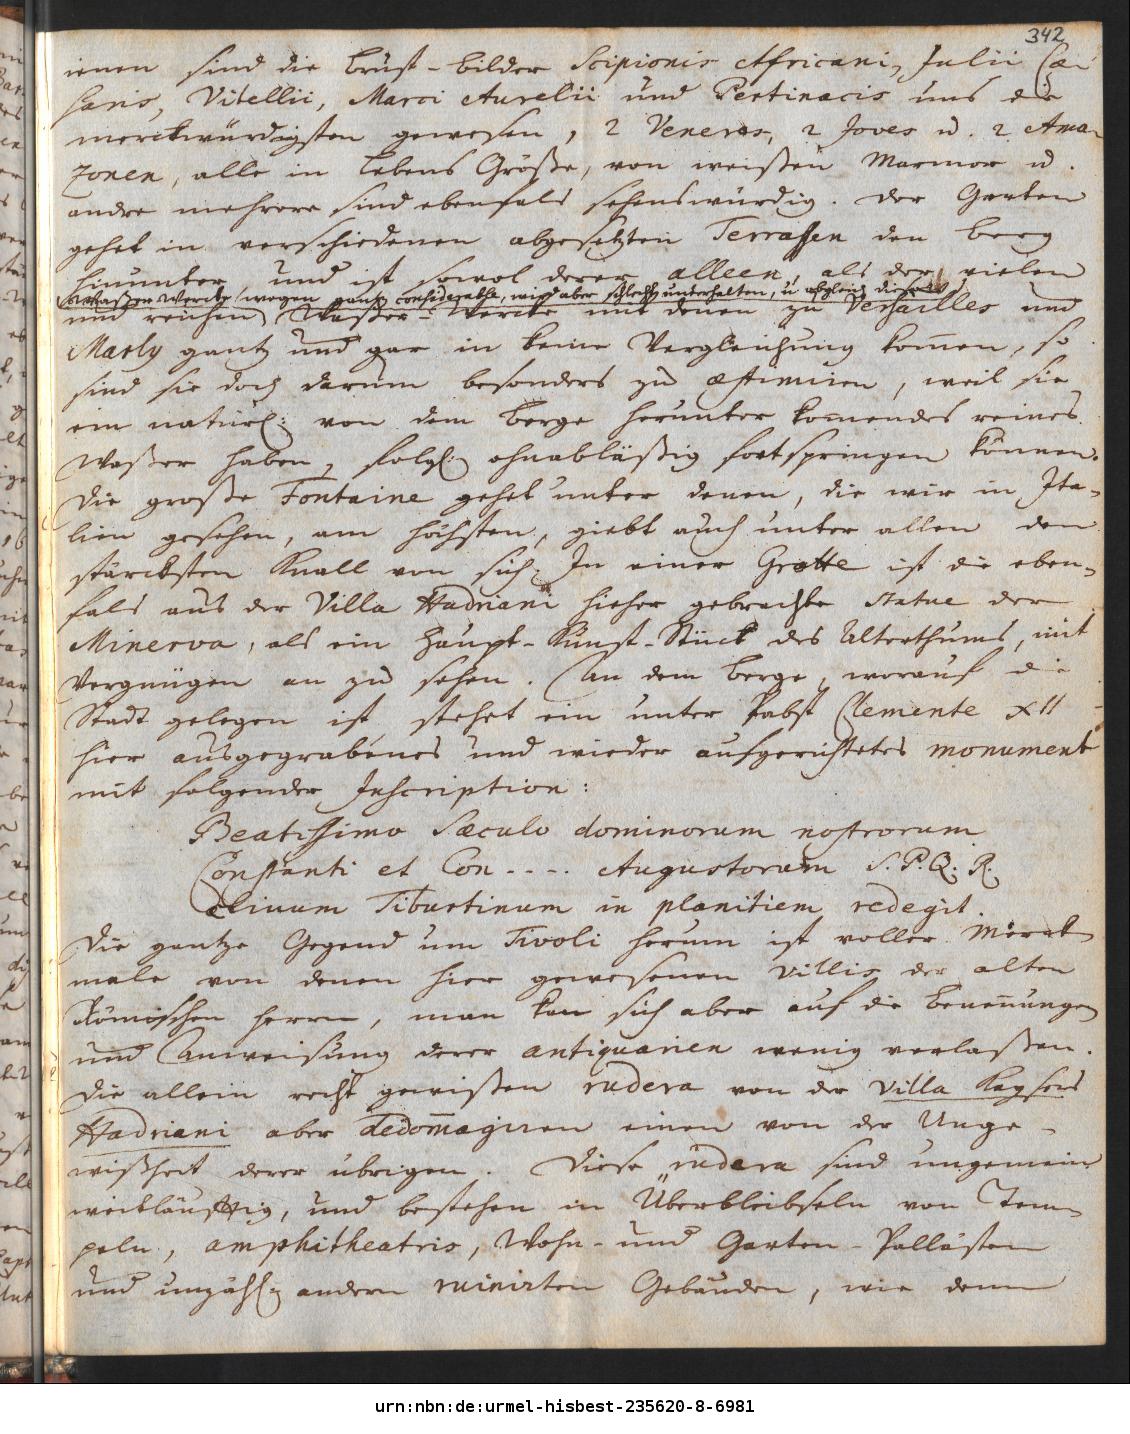 342
jenen sind die Brust-bilder Scipionis Africani, Julii Cæ-
saris, Vitellii, Marci Aurelii und Pertinacis uns die
merckwürdigsten gewesen, 2 Veneres, 2 Joves u. 2 Ama-
zonen, alle in Lebens Größe, von weißen Marmor u.
andre mehrere sind ebenfals sehenswürdig. Der Garten
gehet in verschiedenen abgesetzten Terrassen den Berg
hinunter und ist sowol derer alleen, als der vielen
Wasser-Wercke wegen gantz considerable, wird aber schlecht unterhalten, u. obgleich diese
und reichen Wasser-Wercke mit denen zu Versailles und
Marly gantz und gar in keine Vergleichung kom̄en, so
sind sie doch darum besonders zu æstimiren, weil sie
ein natürl: von dem Berge herunter kom̄endes reines
Waßer haben, folgl: ohnabläßig fortspringen können.
Die große Fontaine gehet unter denen, die wir in Ita-
lien gesehen, am höchsten, giebt auch unter allen den
stärcksten Knall von sich. In einer Grotte ist die eben-
fals aus der Villa Hadriani hieher gebrachte Statue der
Minerva, als ein Haupt-Kunst-Stück des Alterthums, mit
Vergnügen an zu sehen. An dem Berge, worauf die
Stadt gelegen ist, stehet ein unter Pabst Clemente XII
hier ausgegrabenes und wieder aufgerichtetes monument
mit folgender Inscription:
Beatissimo Sæculo dominorum nostrorum
Constanti et Con---- Augustorum S.P.Q.R.
clivum Tiburtinum in planitiem redegit.
Die gantze Gegend um Tivoli herum ist voller Merck-
male von denen hier gewesenen Villis der alten
Römischen Herrn, man kan sich aber auf die Benen̄ungen
und Anweisung derer antiquarien wenig verlaßen.
Die allein recht gewißen rudera von der Villa Kaysers
Hadriani aber dedom̄agiren einen von der Unge-
wißheit derer übrigen. Diese rudera sind ungemein
weitläufftig, und bestehen in Überbleibseln von Tem-
peln, amphitheatris, Wohn- und Garten-Pallästen
und unzähl: andern ruinirten Gebäuden, wie denn
urn:nbn:de:urmel-hisbest-235620-8-6981